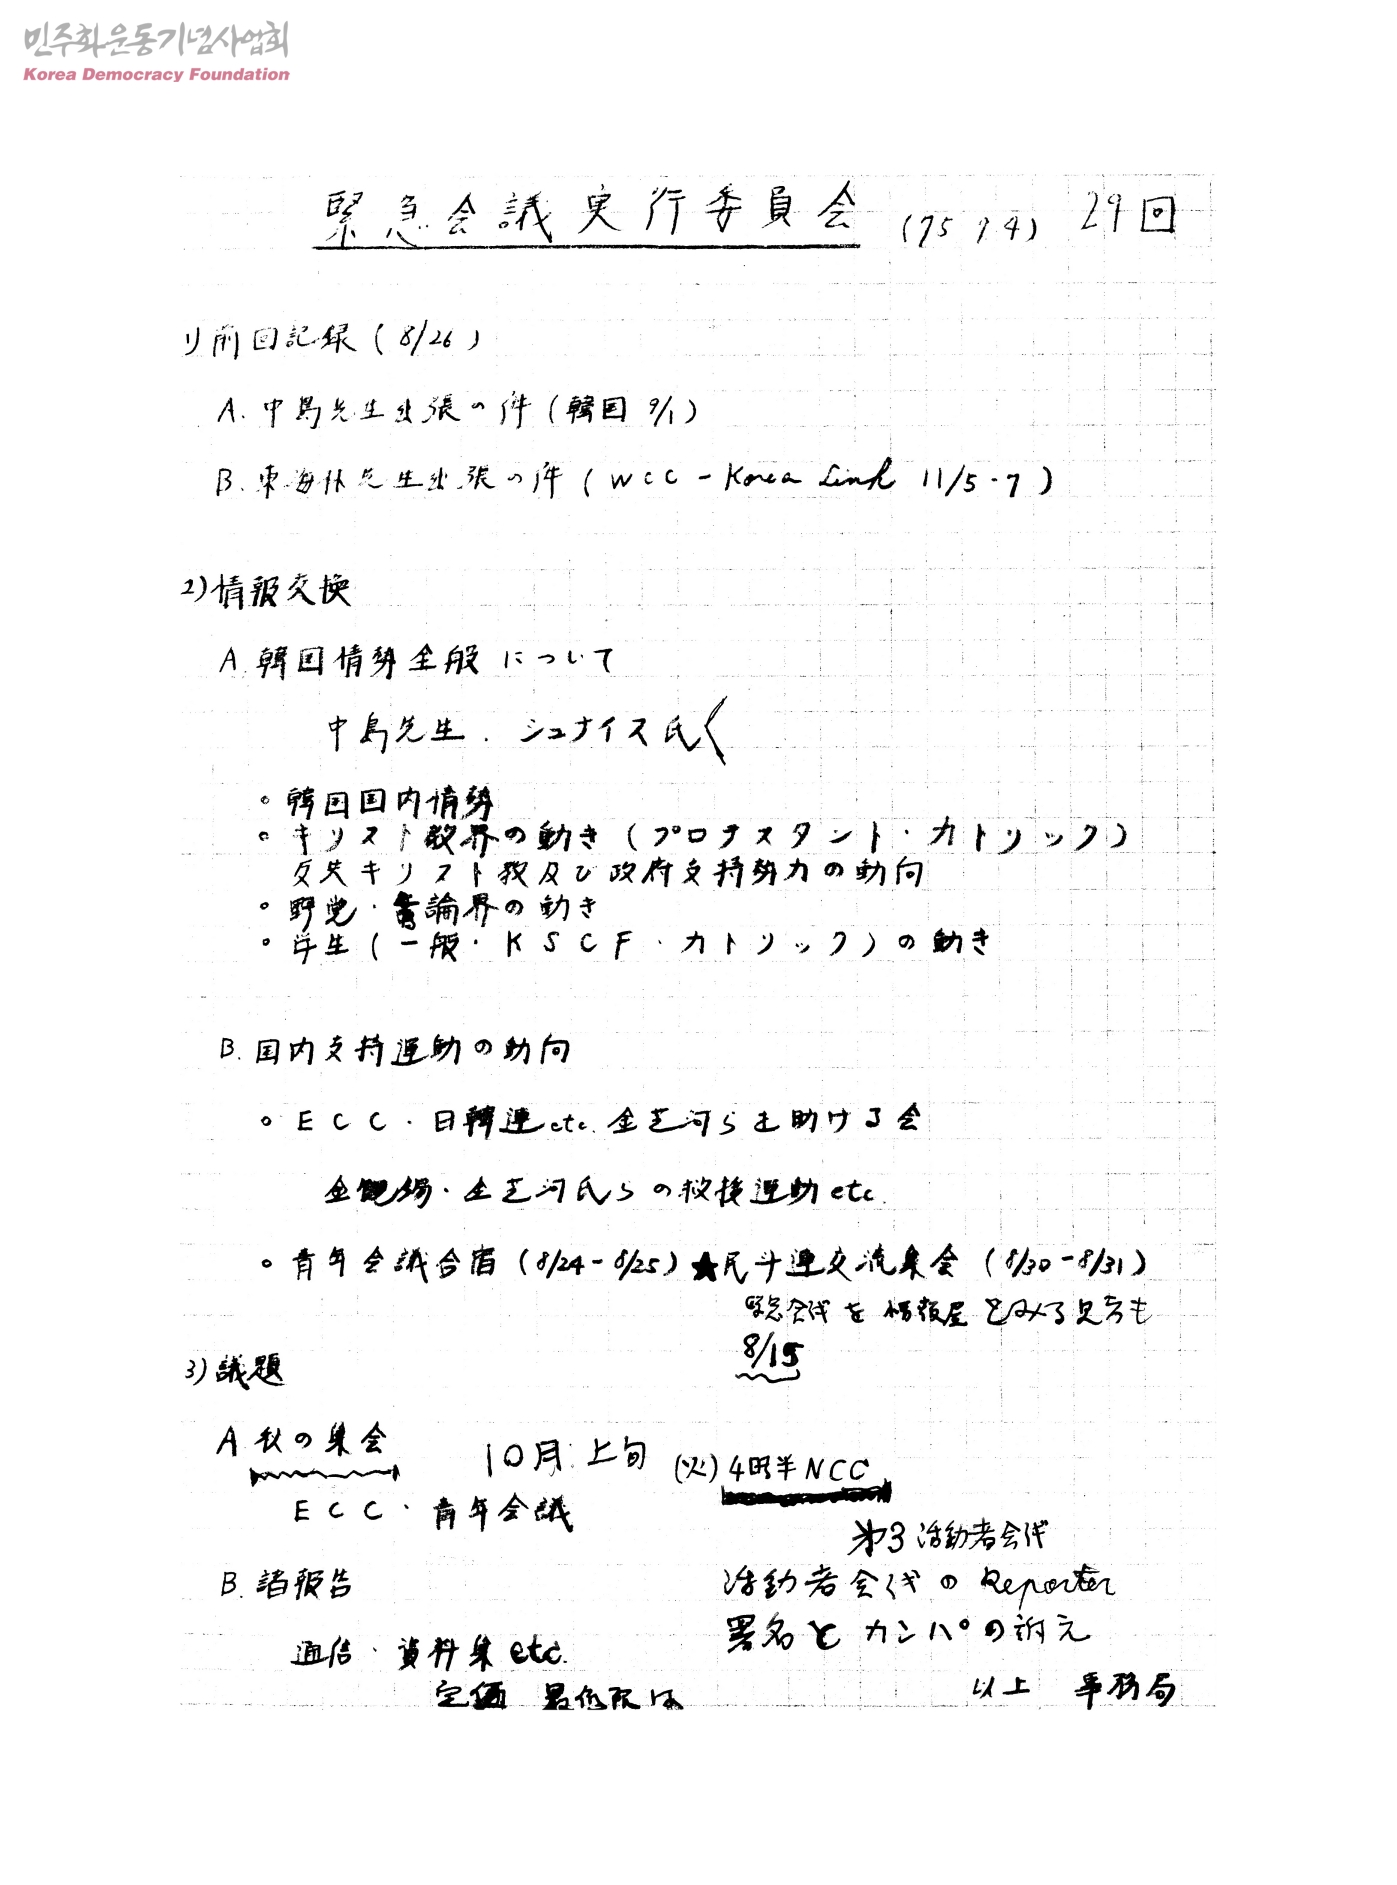 민주화운동기념사업회
Korea Democracy Foundation
緊急会議実行委員会 (75 9 4) 29回
1) 前回記録 (8/26)
A. 中島先生出張の件 (韓国 9/1)
B. 東海林先生出張の件 (WCC - Korea Link 11/5・7)
2) 情報交換
A. 韓国情勢全般について
中島先生. シュナイス氏
。韓国国内情勢
。キリスト教界の動き (プロテスタント・カトリック)
反共キリスト教及び政府支持勢力の動向
。野党・言論界の動き
。学生 (一般・KSCF・カトリック) の動き
B. 国内支持運動の動向
。ECC・日韓連etc. 金芝河らを助ける会
・金芝河氏らの救援運動etc.
。青年会議合宿 (8/24-8/25) ★民斗連交流集会 (8/30-8/31)
をとみる見方も
8/15
3) 議題
A 秋の集会 10月上旬 (火) 4時半NCC
ECC・青年会議
第3活動者会議
B. 諸報告
活動者会議のReporter
署名とカンパの訴え
通信・資料集etc.
定価 最低限は
以上 事務局